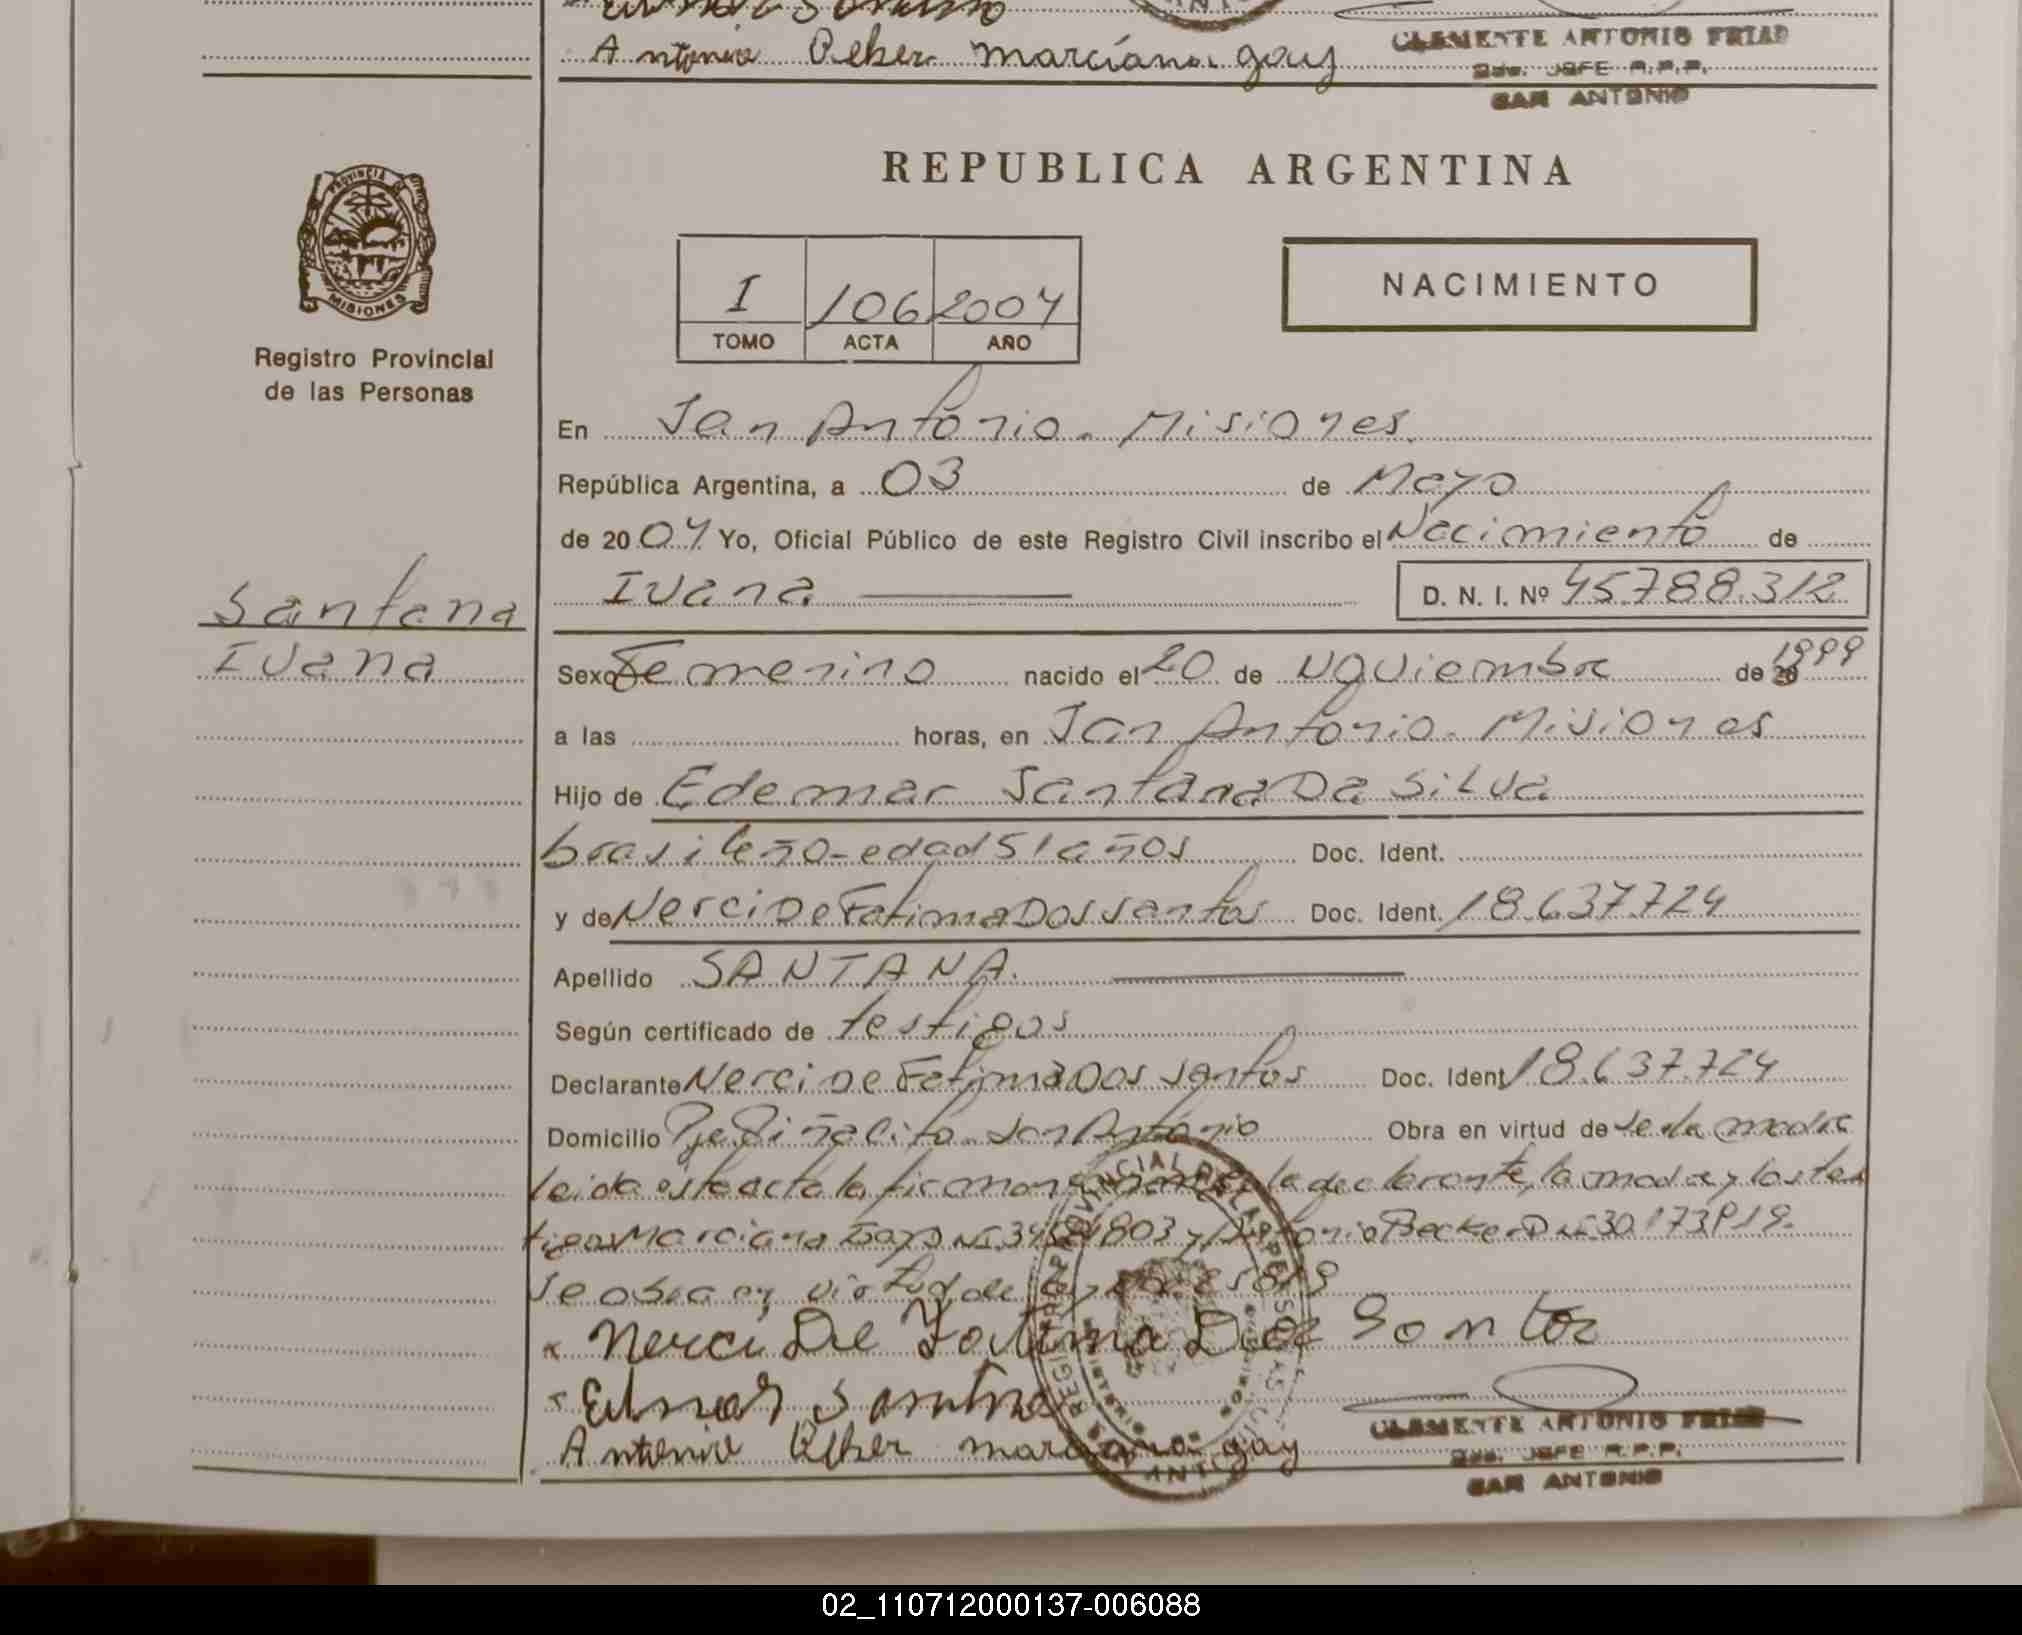 Antonio Beker marciana gay
CLEMENTE ANTONIO FRIAS
JEFE R.P.P.
SAN ANTONIO
PROVINCIA DE
MISIONES
Registro Provincial
de las Personas
REPUBLICA ARGENTINA
I 106 2004
TOMO ACTA AÑO
NACIMIENTO
En San Antonio - Misiones.
República Argentina, a 03 de Mayo
de 20 04 Yo, Oficial Público de este Registro Civil inscribo el Nacimiento de
Ivana D. N. I. Nº 45.788.312
Santana
Ivana
Sexo Femenino nacido el 20 de Noviembre de 1999
a las horas, en San Antonio - Misiones
Hijo de Edemar Santana Da Silva
brasileño - edad 51 años Doc. Ident.
y de Nerci De Fatima Dos Santos Doc. Ident. 18.637.724
Apellido SANTANA.
Según certificado de testigos
Declarante Nerci De Fatima Dos Santos Doc. Ident 18.637.724
Domicilio Pje Piñalito San Antonio Obra en virtud de la madre
leida este acta la firman la declarante, la madre y los tes
tigos Marciana y Antonio Becker
Se obra en virtud de
x Nerci De Fatima Dos Santos
Antonio Beker marciana gay
CLEMENTE ANTONIO FRIAS
JEFE R.P.P.
SAN ANTONIO
02_110712000137-006088